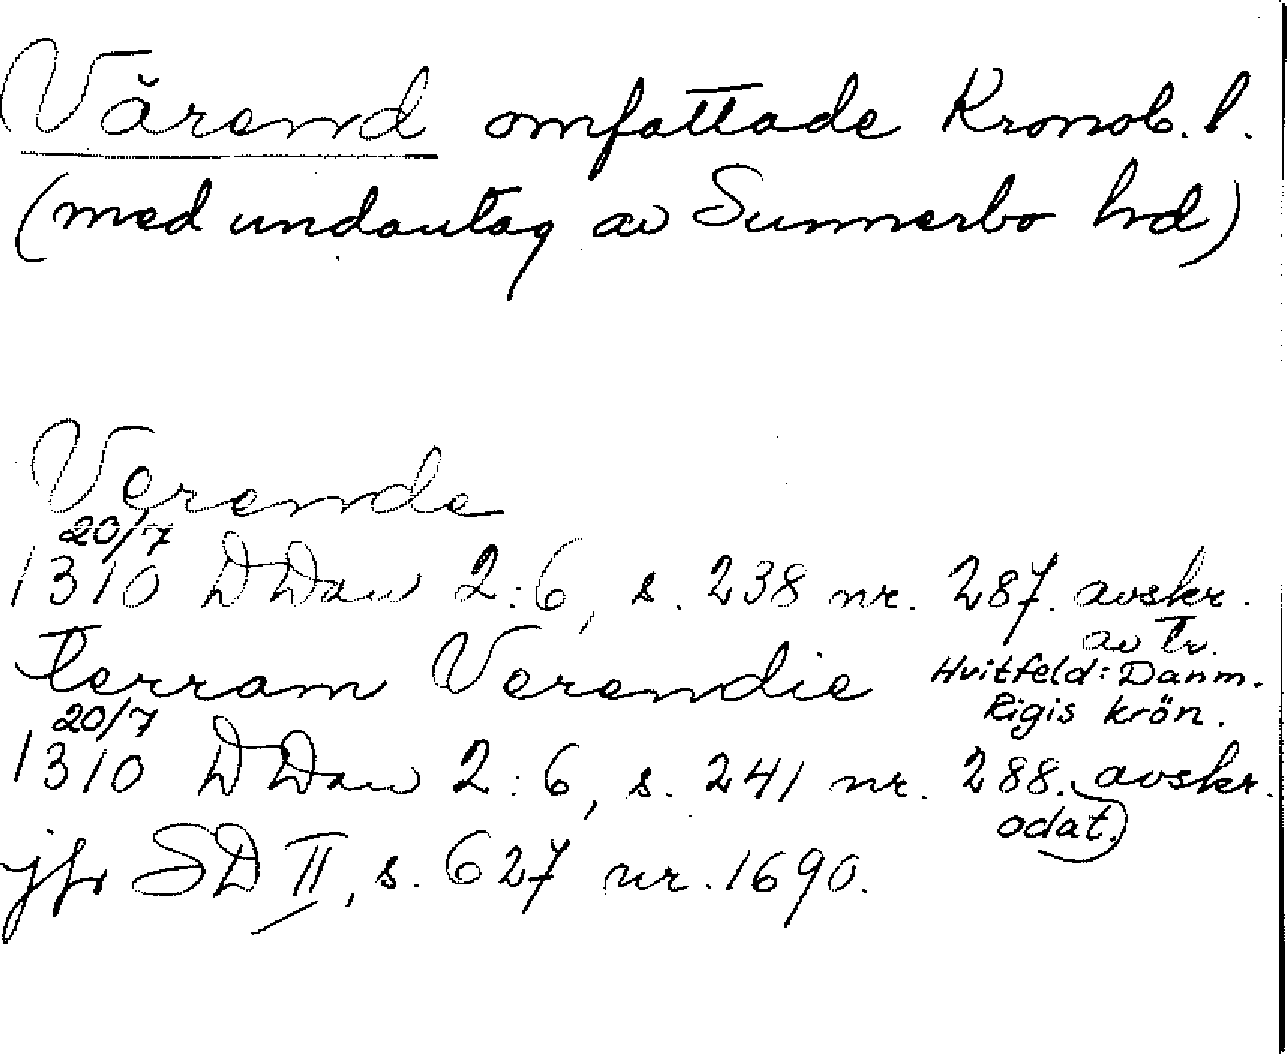 Värend omfattade Kronob. l.
(med undantag av Sunnerbo hd)
Verende
20/7
1310 DDan 2:6, s. 238 nr. 287. avskr.
av tr.
Hvitfeld: Danm.
Rigis krön.
terram Verendie
20/7
1310 DDan 2:6, s. 241 nr. 288. avskr.
odat.
jfr SD II, s. 627 nr. 1690.